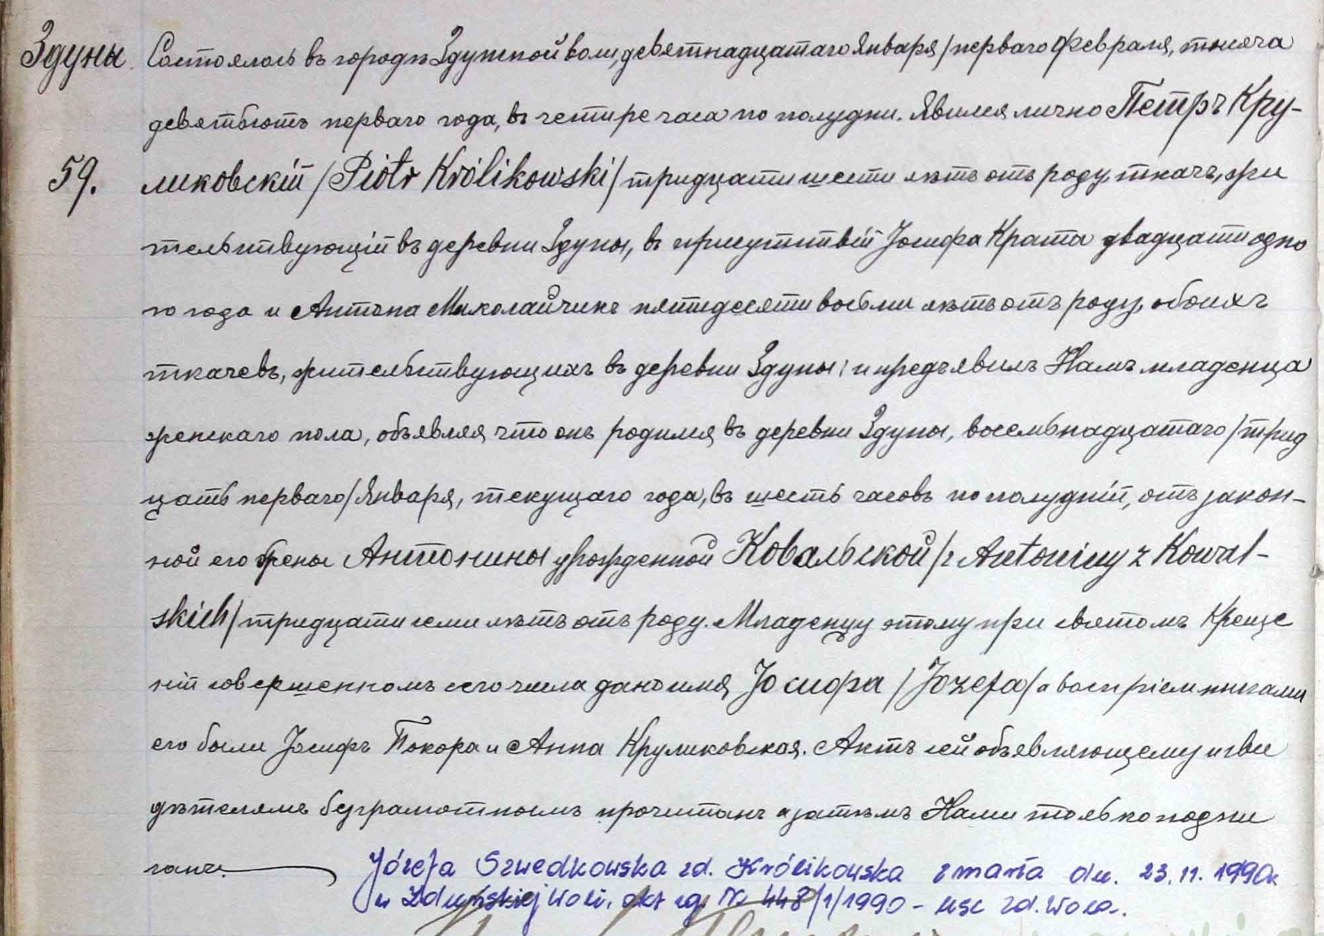 Здуны. Состоялось въ городѣ Здунской воли, девятнадцатаго Января /перваго Февраля, тысяча
девятьсотъ перваго года, въ четыре часа по полудни. Явился лично Петръ Кру-
59. ликовскій /Piotr Królikowski/ тридцати шести лѣтъ отъ роду, ткачъ, жи
тельствующій въ деревни Здуны, въ присутствіи Іосифа Крата двадцати одно
го года и Антона Миколайчика пятидесяти восьми лѣтъ отъ роду, обоихъ
ткачевъ, жительствующихъ въ деревни Здуны; и предъявилъ Намъ младенца
женскаго пола, объявляя что онъ родился въ деревни Здуны, восемьнадцатаго /трид
цать перваго/ Января, текущаго года, въ шесть часовъ по полудніи, отъ закон-
ной его жены Антонины урожденной Ковальской /z Antoniny z Kowal-
skich/ тридцати семи лѣтъ отъ роду. Младенцу этому при святомъ Креще
ніи совершенномъ сего числа дано имя Іосифа /Józefa/ а воспріемниками
его были Іосифъ Покора и Анна Круликовская. Актъ сей объявляющему и сви
дѣтелямъ безграмотнымъ прочитанъ а затѣмъ Нами только подпи
санъ.
Józefa Szwedkowska zd. Królikowska zmarła dn. 23.11.1990r
w Zduńskiej Woli, akt zg Nr 448/1/1990 - USC Zd. Wola.